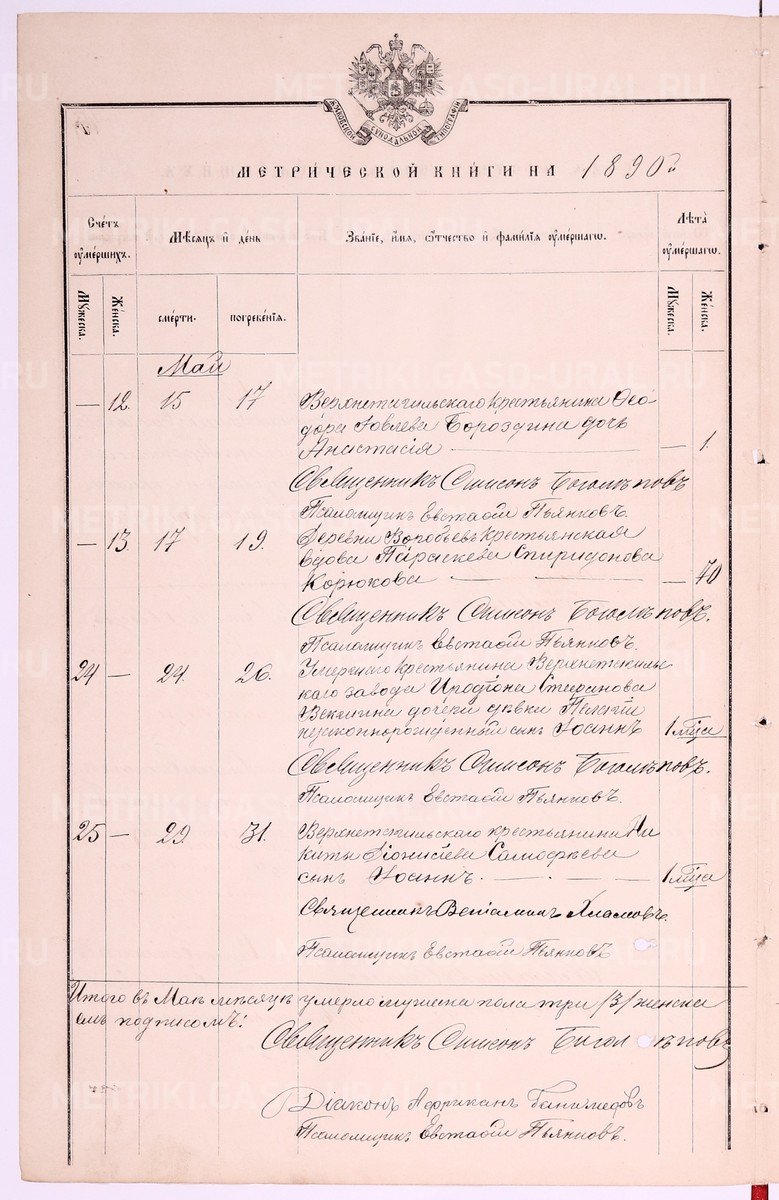 МОСКОВСКОЙ СѴНОДАЛЬНОЙ ТИПОГРАФІИ
МЕТРИЧЕСКОЙ КНИГИ НА 1890 й
Счетъ оумершихъ.
Мѣсяцъ и день
Званіе, имя, отчество и фамилія оумершагω.
Лѣта оумершагω.
Мужеска.
Женска.
смерти.
погребенія.
Мужеска.
Женска.
Май
— 12. 15 17 Верхнетагильскаго крестьянина Ѳео-
дора Іовлева Бороздина дочь
Анастасія — — 1.
Священникъ Симеонъ Боголѣповъ
Псаломщикъ Евстафій Пьянковъ.
— 13. 17 19. Деревни Воробьевъ крестьянская
вдова Параскева Спиридонова
Корюкова — — — 70
Священникъ Симеонъ Боголѣповъ.
Псаломщикъ Евстафій Пьянковъ.
24 — 24. 26. Умершаго крестьянина Верхнетагиль-
скаго завода Иродіона
дочери дѣвки Пелагіи
незаконнорожденный сынъ Іоаннъ 1 мѣца
Священникъ Симеонъ Боголѣповъ.
Псаломщикъ Евстафій Пьянковъ.
25 — 29. 31. Верхнетагильскаго крестьянина Ни
киты Діонисіева
сынъ Іоаннъ. — — 1 мѣца
Священникъ Веніаминъ Хламовъ.
Псаломщикъ Евстафій Пьянковъ
Итого въ Маѣ мѣсяцѣ умерло мужеска пола три /3/ женска
емъ подписомъ:
Священникъ Симеонъ Боголѣповъ
Діаконъ Африканъ
Псаломщикъ Евстафій Пьянковъ.
METRIKI.GASO-URAL.RU